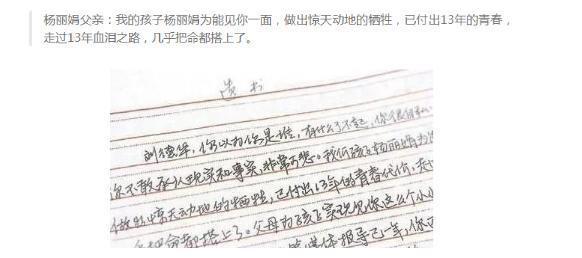 杨丽娟父亲：我的孩子杨丽娟为能见你一面，做出惊天动地的牺牲，已付出13年的青春，
走过13年血泪之路，几乎把命都搭上了。
遗书
刘德华，你以为你是谁，有什么了不起，你
你不敢承认现实和事实，非常可悲。我们孩子杨丽娟为
做出惊天动地的牺牲，已付出13年的青春代价，
命都搭上了。父母为孩子实现见你这么个小
媒体报导已一年，你